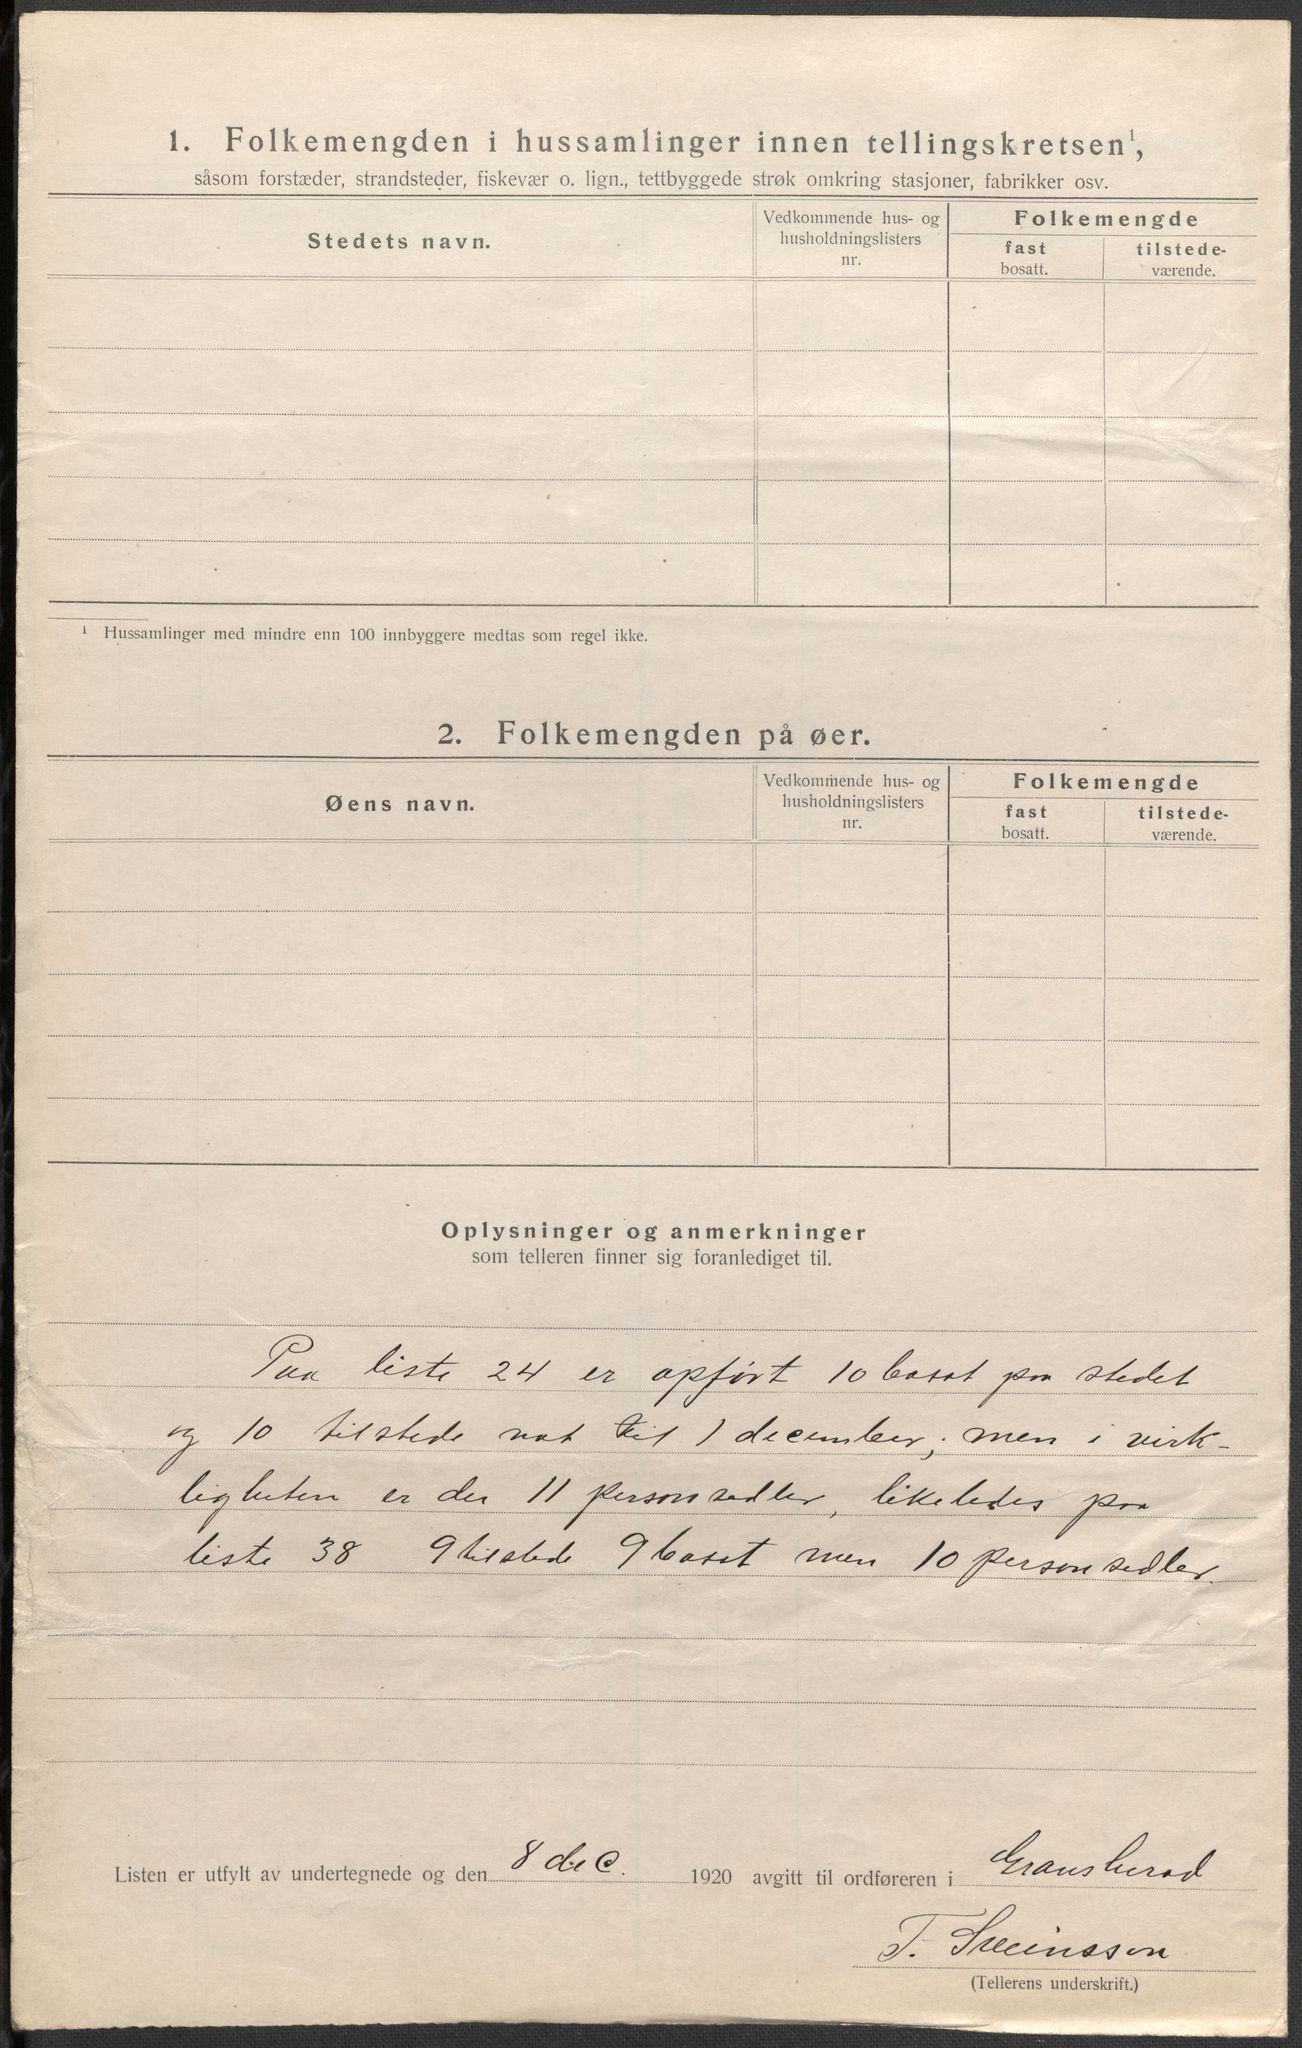 1. Folkemengden i hussamlinger innen tellingskretsen¹,
såsom forstæder, strandsteder, fiskevær o. lign., tettbyggede strøk omkring stasjoner, fabrikker osv.
Stedets navn.
Vedkommende hus- og
husholdningslisters
nr.
Folkemengde
fast
bosatt.
tilstede-
værende.
¹ Hussamlinger med mindre enn 100 innbyggere medtas som regel ikke.
2. Folkemengden på øer.
Øens navn.
Vedkommende hus- og
husholdningslisters
nr.
Folkemengde
fast
bosatt.
tilstede-
værende.
Oplysninger og anmerkninger
som telleren finner sig foranlediget til.
Paa liste 24 er opført 10 bosat paa stedet
og 10 tilstede nat til 1 december; men i virk-
ligheten er der 11 personsedler, likeledes paa
liste 38 9 tilstede 9 bosat men 10 personsedler.
Listen er utfylt av undertegnede og den 8 dec. 1920 avgitt til ordføreren i Gransherad
T. Sveinsson
(Tellerens underskrift.)